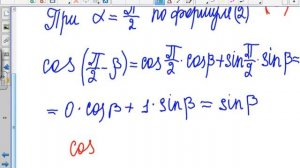 При α = π/2 по формул(2)
cos(π/2 - β) = cos π/2 · cosβ + sin π/2 · sinβ =
= 0 · cosβ + 1 · sinβ = sinβ
cos